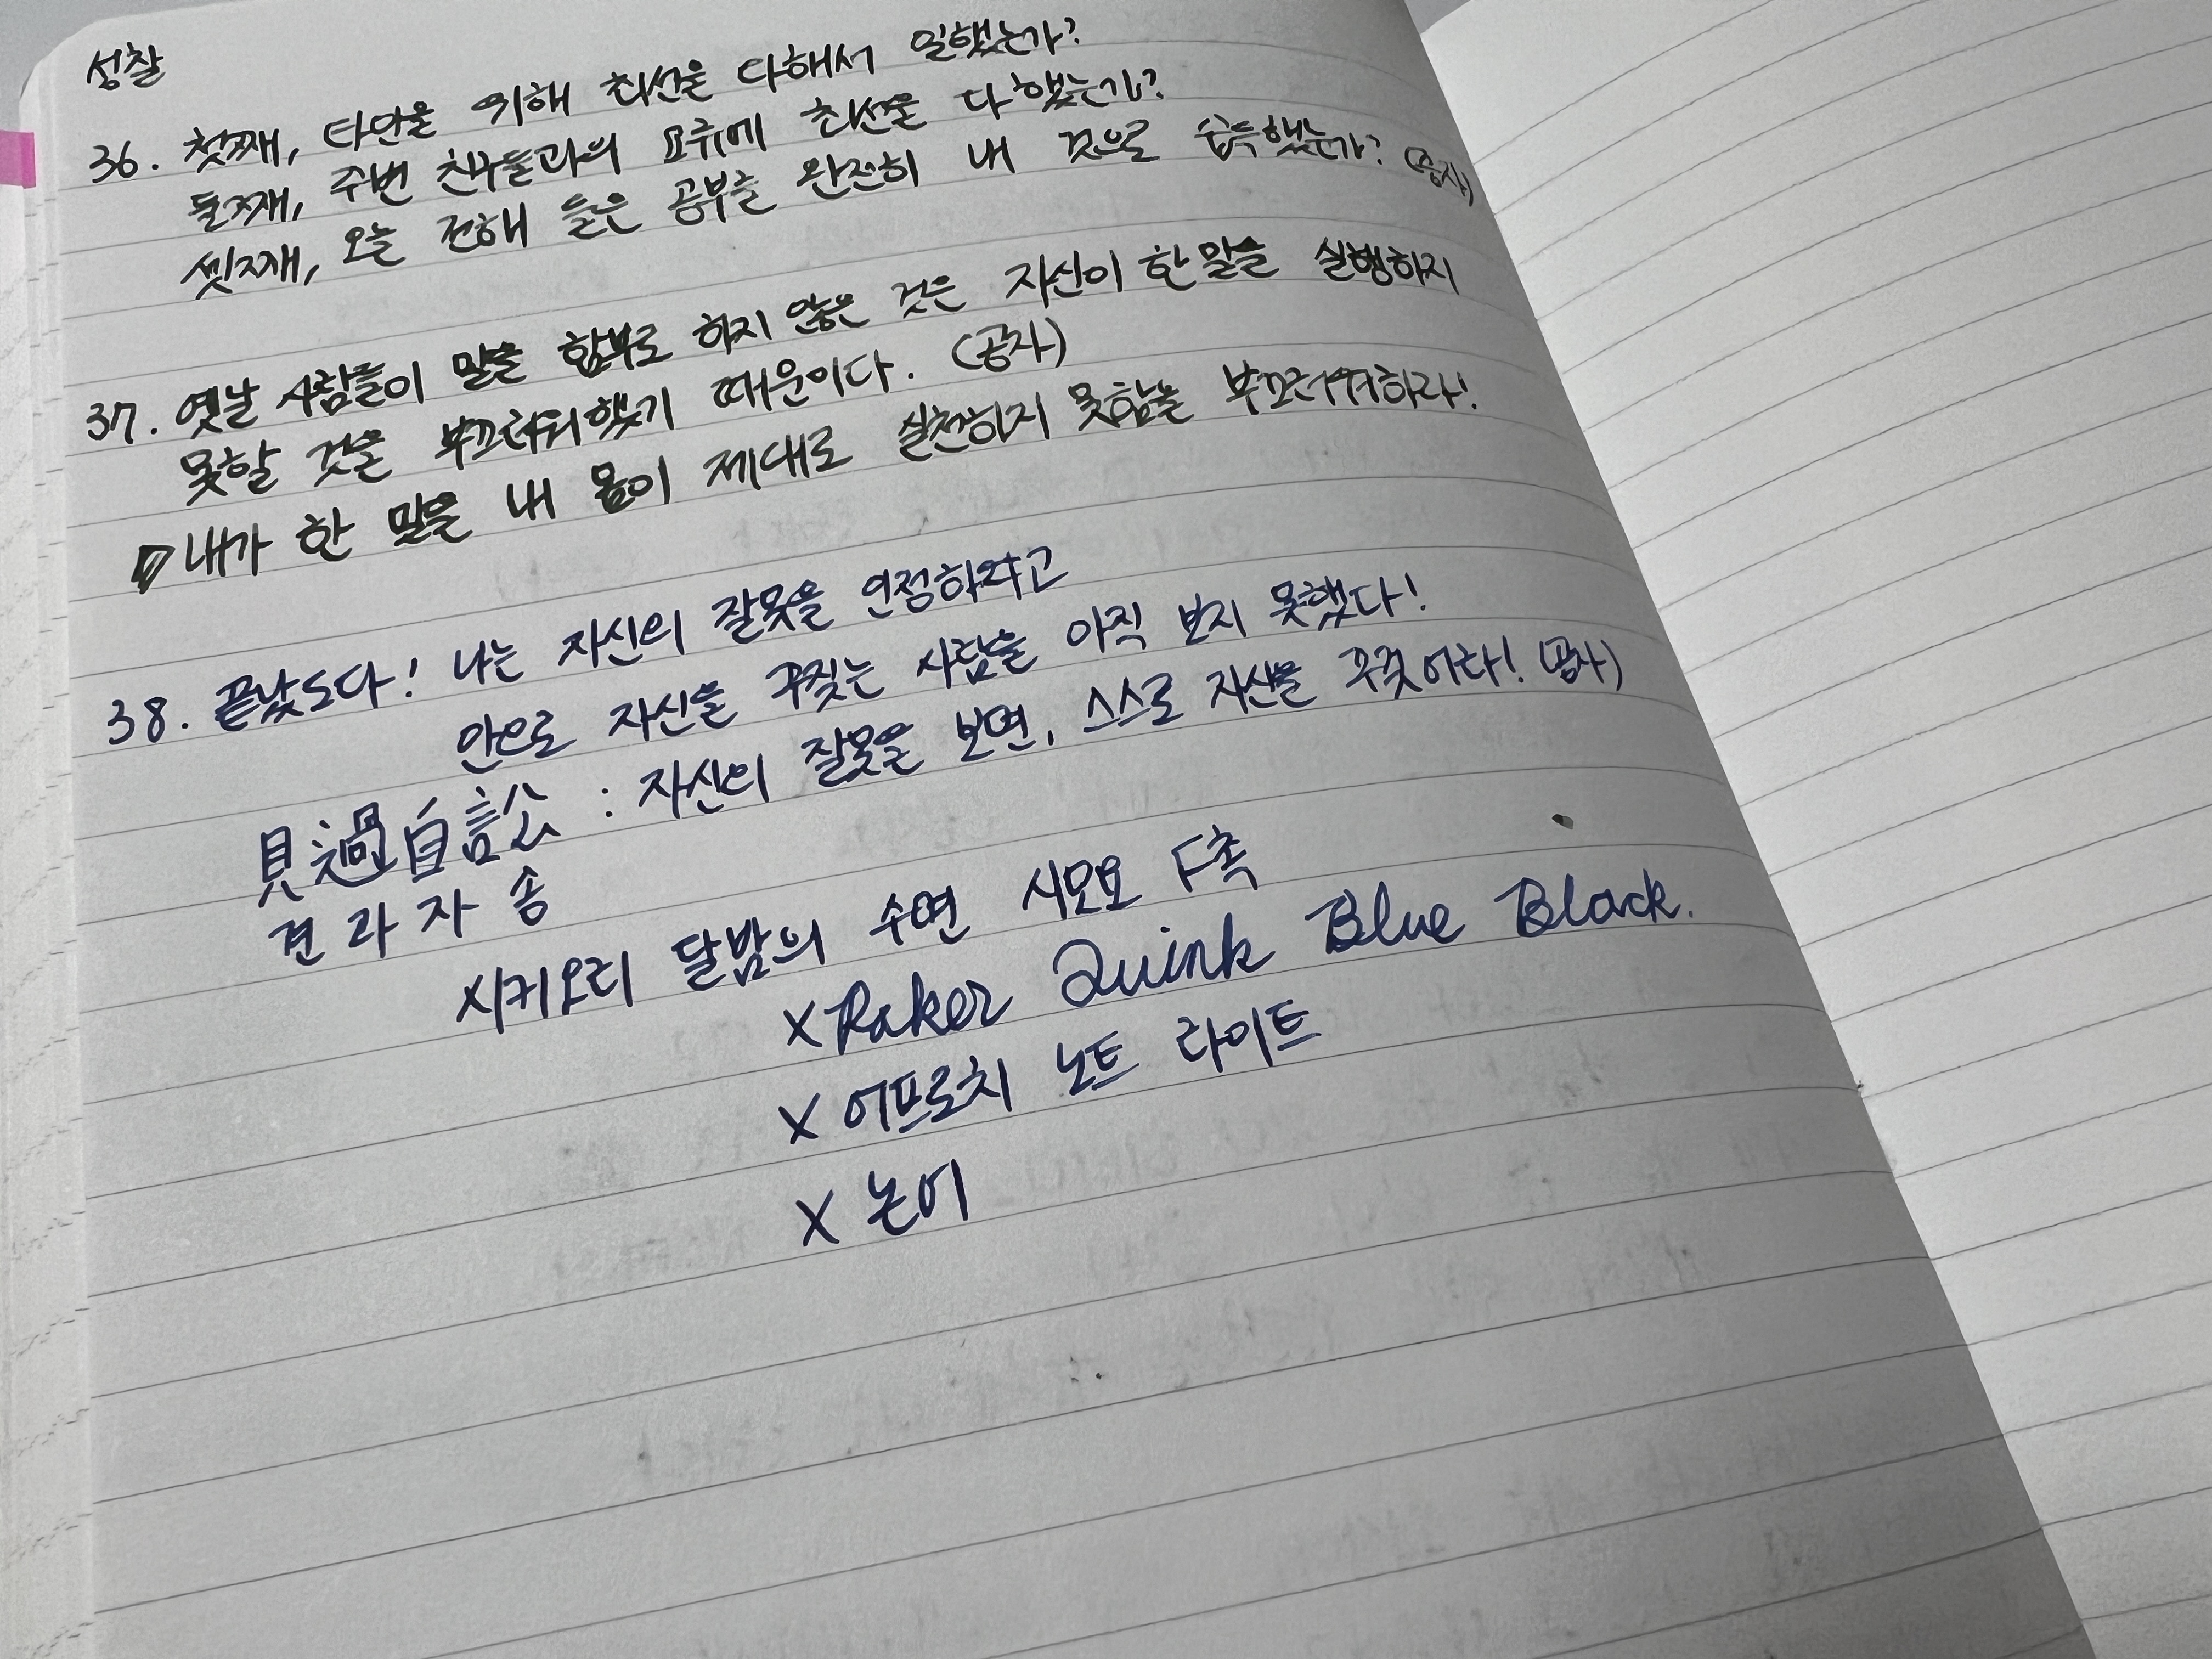 성찰
36. 첫째, 타인을 위해 최선을 다해서 일했는가?
둘째, 주변 친구들과의 교류에 최선을 다했는가?
셋째, 오늘 전해 들은 공부를 완전히 내 것으로 습득했는가? (증자)
37. 옛날 사람들이 말을 함부로 하지 않은 것은 자신이 한 말을 실행하지
못할 것을 부끄러워했기 때문이다. (공자)
내가 한 말을 내 몸이 제대로 실천하지 못함을 부끄러워하라!
38. 끝났도다! 나는 자신의 잘못을 인정하고
안으로 자신을 꾸짖는 사람을 아직 보지 못했다!
見過自訟 : 자신의 잘못을 보면, 스스로 자신을 꾸짖어라! (공자)
견 과 자 송
시키오리 달밤의 수면 시모요 F촉
X Parker Quink Blue Black.
X 어프로치 노트 라이트
X 논어